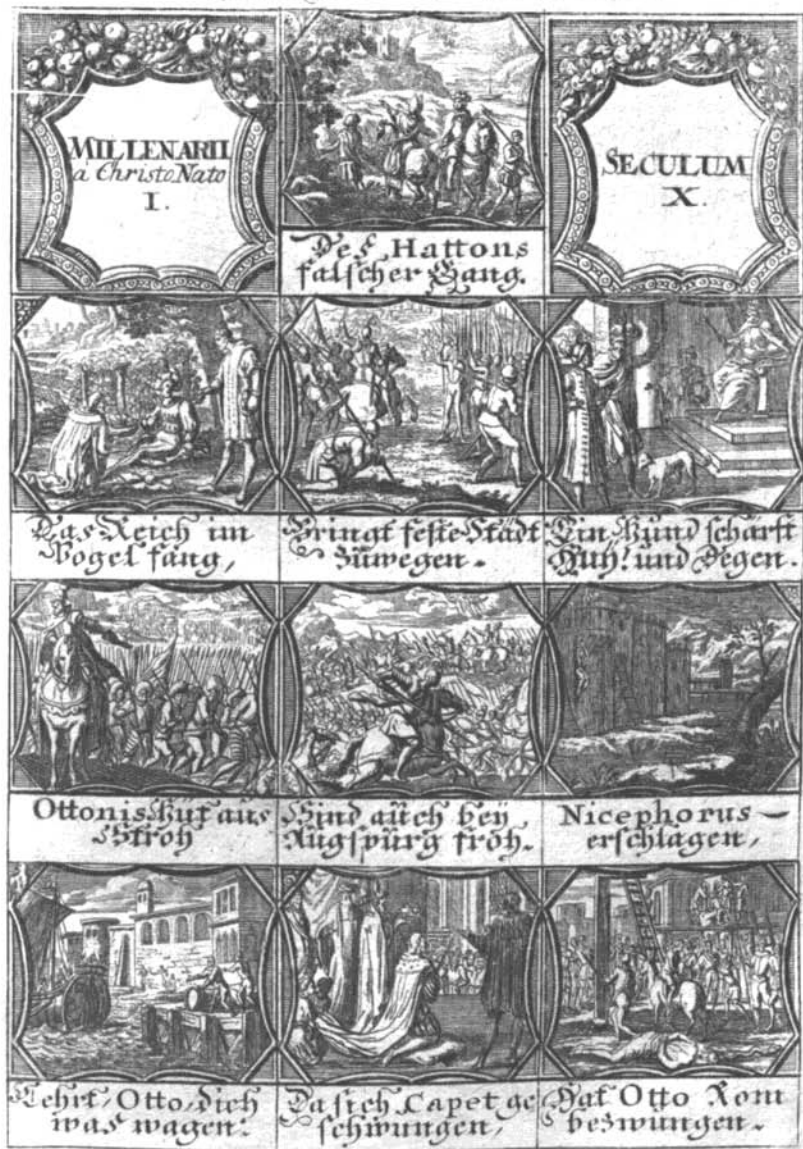 MILLENARII
a Christo Nato
I.
SECULUM
X.
Deß Hattons
falscher Gang.
Das Reich im
Vogel fang,
Bringt feste Städt
zuwegen.
Ein Hund schärft
und Degen.
Ottonis Hüt aus
Stroh
Sind auch bey
Augspürg froh.
Nicephorus
erschlagen,
Lehrt, Otto, dich
was wagen:
Da sich Capet ge
schwungen,
Hat Otto Rom
bezwungen.